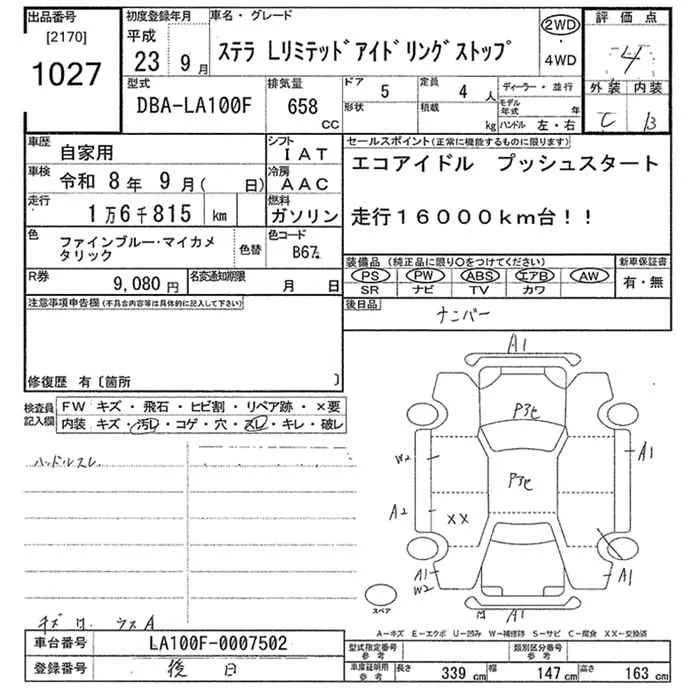 出品番号
[2170]
1027
初度登録年月
平成
23 9月
車名・グレード
ステラ Lリミテッドアイドリングストップ
2WD
・
4WD
評価点
4
外装 内装
C B
型式
DBA-LA100F
排気量
658
CC
ドア 5
形状
定員 4 人
積載 kg
ディーラー・並行
モデル年式 年
ハンドル 左・右
車歴
自家用
シフト
IAT
車検
令和 8年 9月( 日)
冷房
AAC
走行
1万6千815 km
燃料
ガソリン
セールスポイント(正常に機能するものに限ります)
エコアイドル プッシュスタート
走行16000km台!!
色
ファインブルー・マイカメタリック
色替
色コード
B67
R券
9,080円
名変通知期限
月 日
装備品(純正品に限り○をつけてください)
PS PW ABS エアB AW
SR ナビ TV カワ
新車保証書
有・無
注意事項申告欄(不具合内容等は具体的に記入して下さい)
後日品
ナンバー
修復歴 有〔箇所 〕
検査員記入欄
FW キズ・飛石・ヒビ割・リペア跡・×要
内装 キズ・汚レ・コゲ・穴・スレ・キレ・破レ
ハンドルスレ
A1
P3セ
P3セ
W2
A2
XX
A1
A1
W2
A1
A1
スペア
A-キズ E-エクボ U-凹み W-補修跡 S-サビ C-腐食 XX-交換済
車台番号
LA100F-0007502
登録番号
後日
型式指定番号
参考
類別区分番号
参考
車庫証明用
参考
長さ 339 cm
幅 147 cm
高さ 163 cm